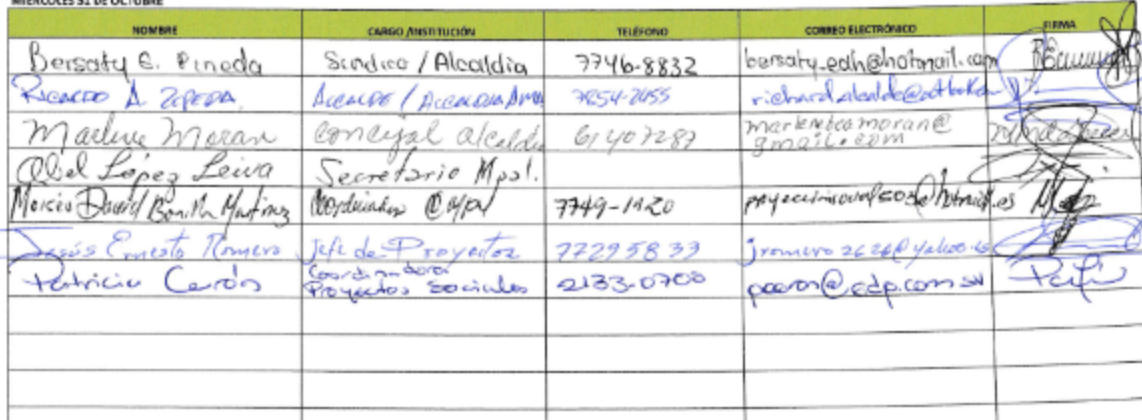 MIÉRCOLES 31 DE OCTUBRE
NOMBRE CARGO /INSTITUCIÓN TELÉFONO CORREO ELECTRÓNICO FIRMA
Bersaty E. Pineda Sindico / Alcaldia 7746-8832 bersaty_edh@hotmail.com
RICARDO A. ZEPEDA ALCALDE / ALCALDIA 7854-2455
Marlene Moran Concejal alcaldia 61407287 marlenetcamoran@
gmail.com
Abel López Leiva Secretario Mpal.
David Bonilla Martinez Coordinador 7749-1420
Jesús Ernesto Romero Jefe de Proyectos 77295833 jromero2626@yahoo.es
Patricia Cerón Coordinadora
Proyectos Sociales 2133-0700 pceron@edp.com.sv